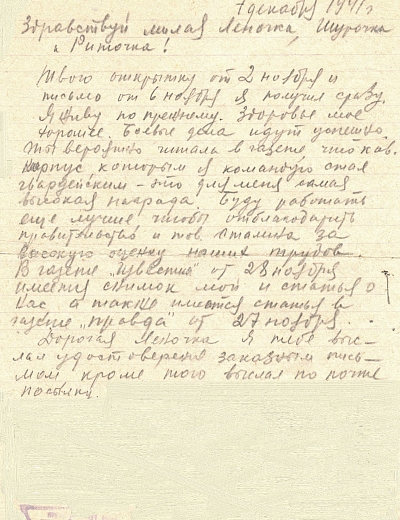 1 декабря 1941 г
Здравствуй милая Леночка, Шурочка
и Риточка!
Твою открытку от 2 ноября и
письмо от 6 ноября я получил сразу.
Я живу по прежнему. Здоровье мое
хорошее. Боевые дела идут успешно.
Ты вероятно читала в газете что кав.
корпус которым я командую стал
гвардейским – это для меня самая
высокая награда. Буду работать
еще лучше чтобы отблагодарить
правительство и тов. Сталина за
высокую оценку наших трудов.
В газете "Известия" от 28 ноября
имеется снимок мой и статья о
нас а также имеется статья в
газете "Правда" от 27 ноября.
Дорогая Леночка я тебе выс-
лал удостоверение заказным пись-
мом кроме того выслал по почте
посылку.